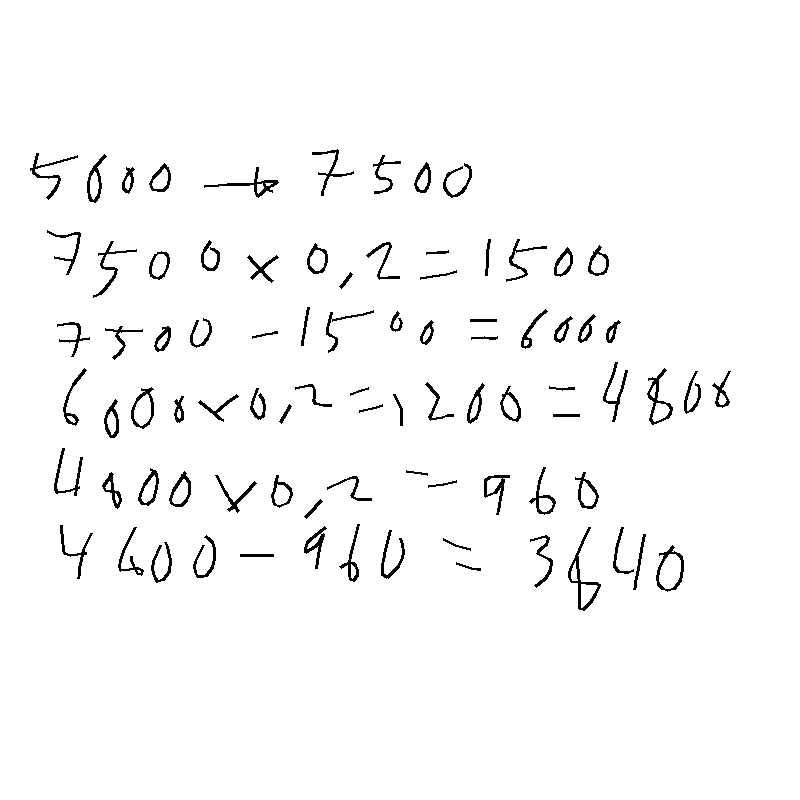 5600 → 7500
7500 × 0,2 = 1500
7500 - 1500 = 6000
6000 × 0,2 = 1200 = 4800
4800 × 0,2 = 960
4800 - 960 = 3840